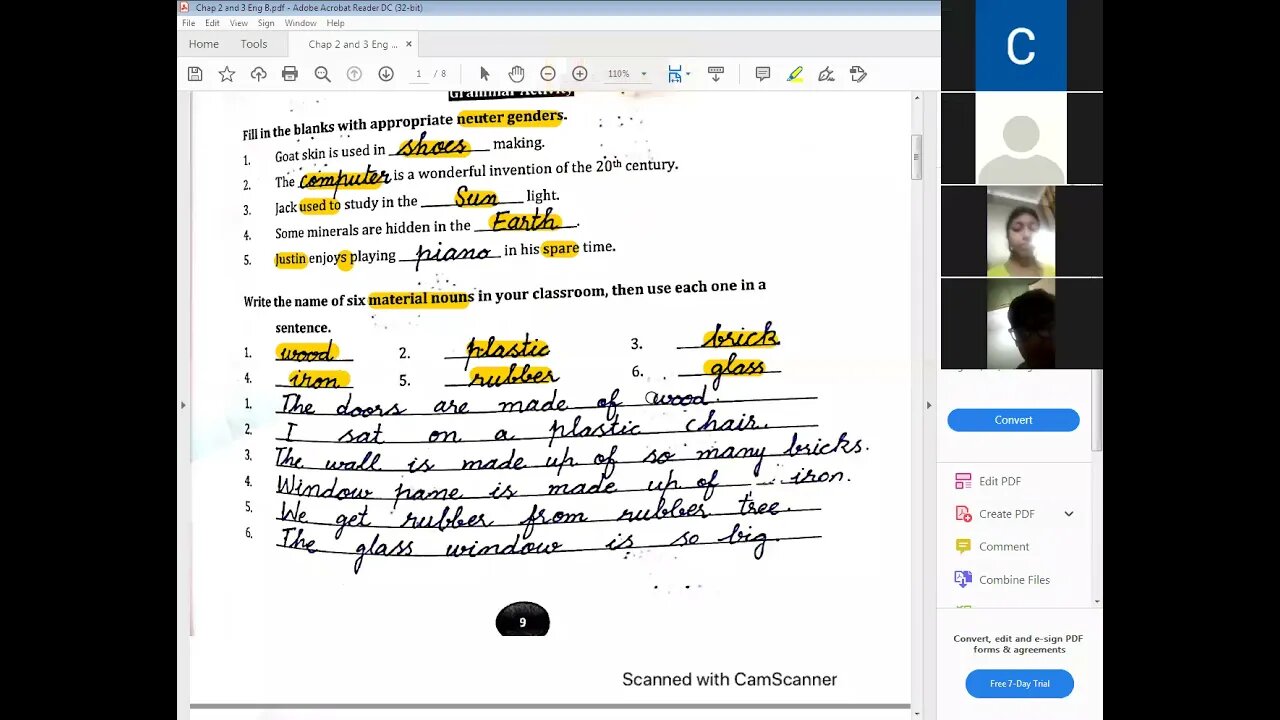 Chap 2 and 3 Eng B.pdf - Adobe Acrobat Reader DC (32-bit)
File Edit View Sign Window Help
Home Tools Chap 2 and 3 Eng ... ×
1 / 8 110%
C
Fill in the blanks with appropriate neuter genders.
1. Goat skin is used in shoes making.
2. The computer is a wonderful invention of the 20th century.
3. Jack used to study in the Sun light.
4. Some minerals are hidden in the Earth.
5. Justin enjoys playing piano in his spare time.
Write the name of six material nouns in your classroom, then use each one in a
sentence.
1. wood 2. plastic 3. brick
4. iron 5. rubber 6. glass
1. The doors are made of wood.
2. I sat on a plastic chair.
3. The wall is made up of so many bricks.
4. Window pame is made up of iron.
5. We get rubber from rubber tree.
6. The glass window is so big.
9
Scanned with CamScanner
Convert
Edit PDF
Create PDF
Comment
Combine Files
Convert, edit and e-sign PDF
forms & agreements
Free 7-Day Trial